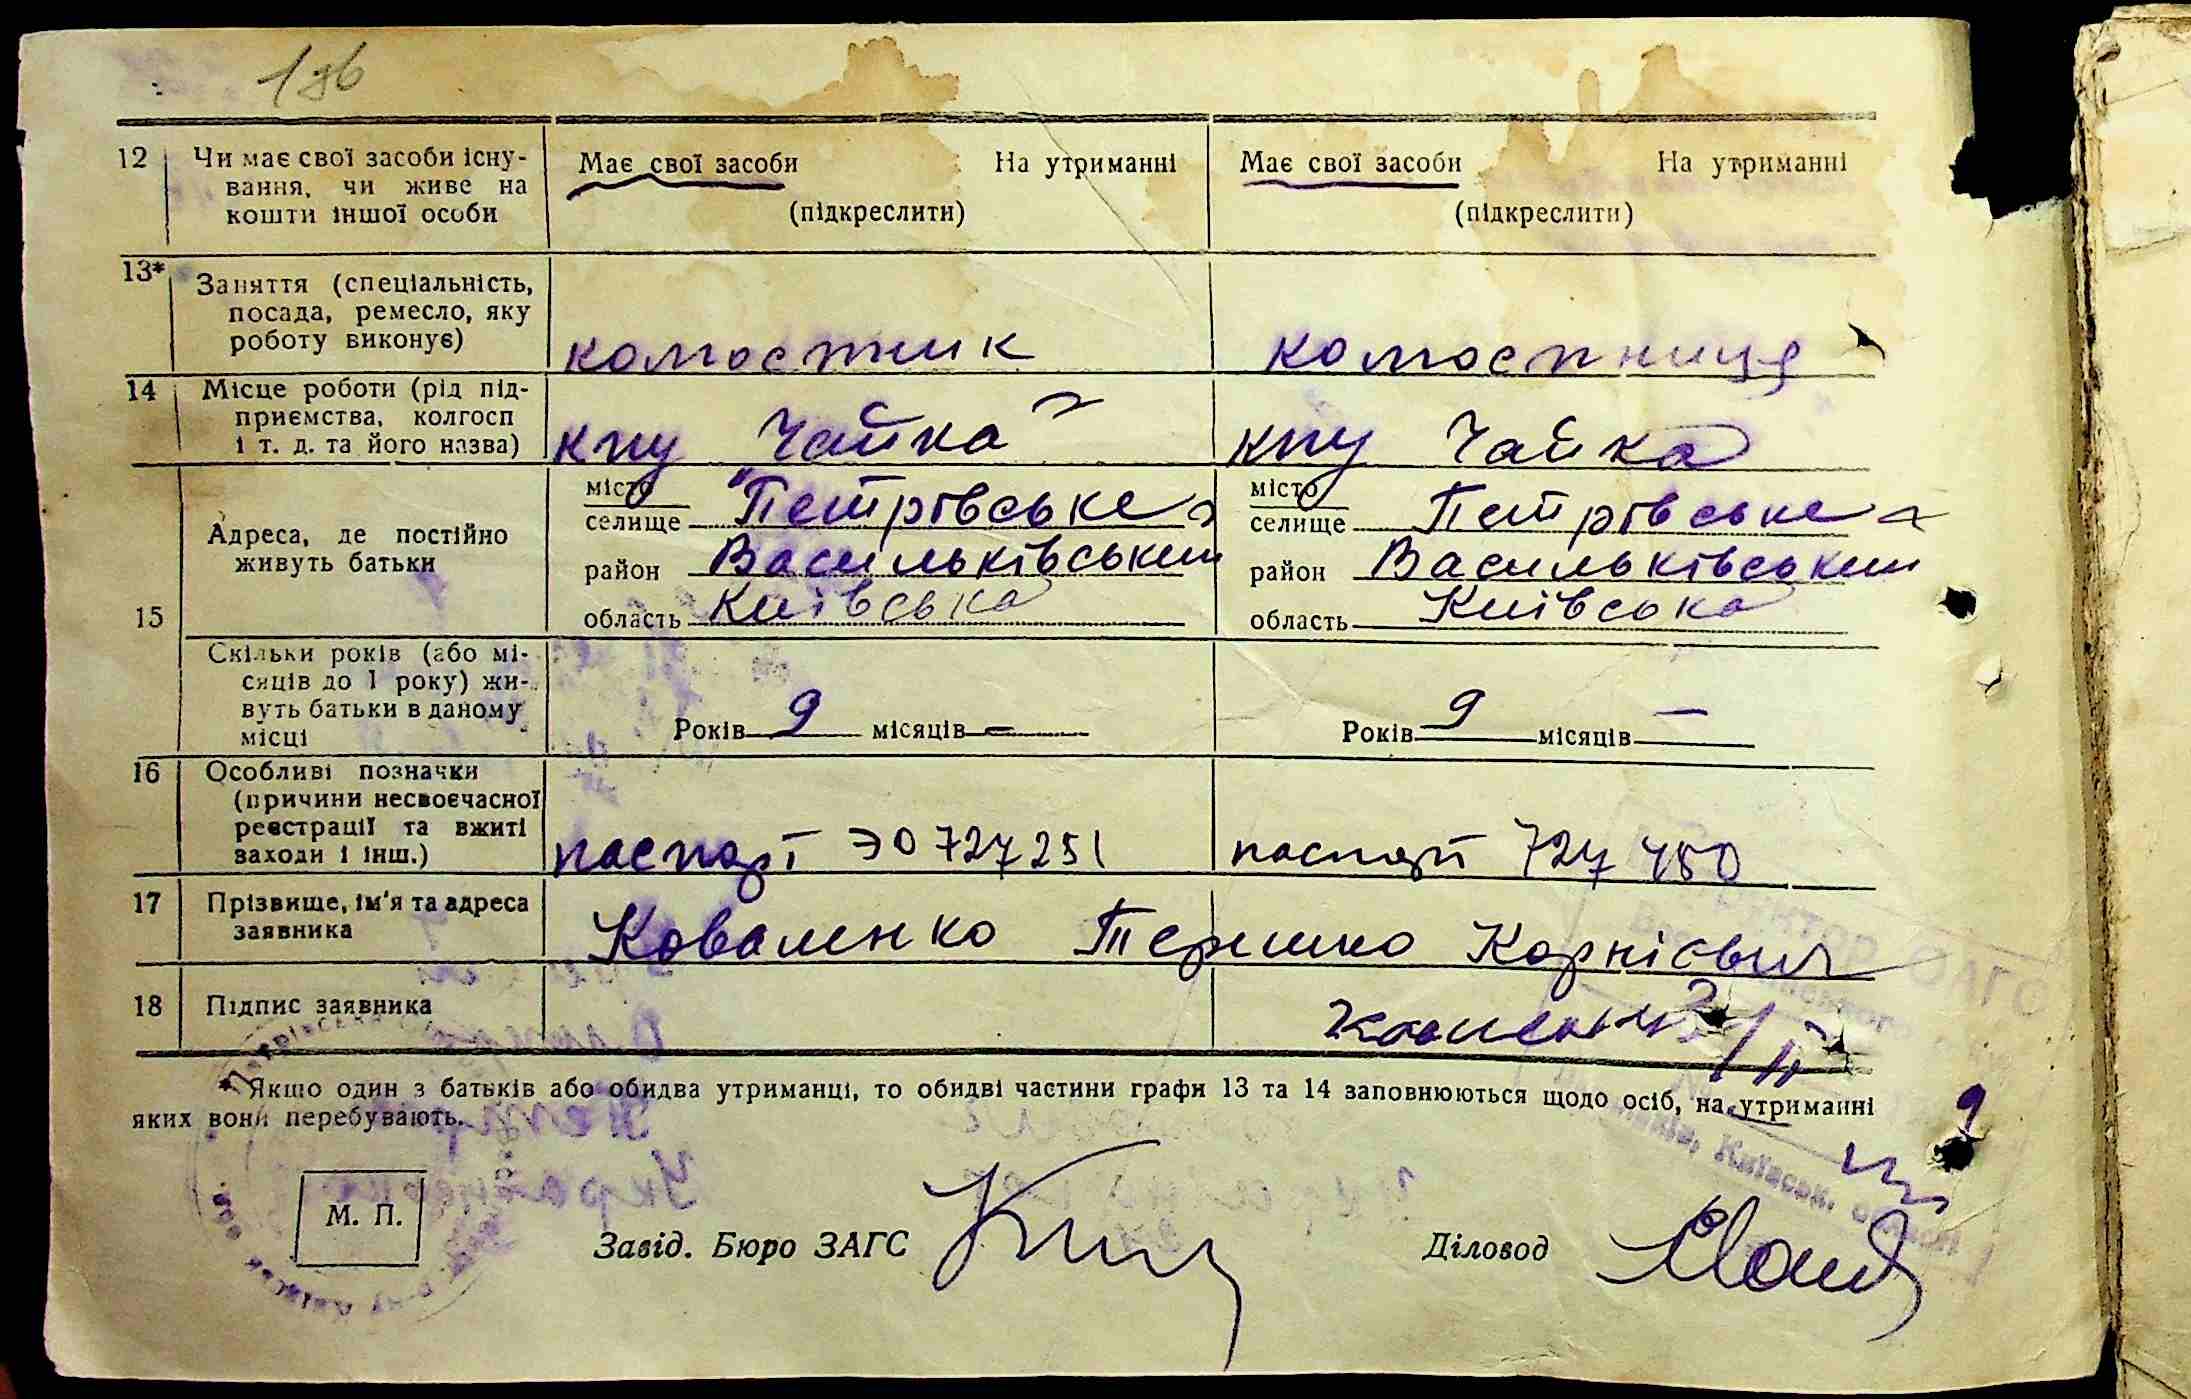 12 Чи має свої засоби існу-
вання, чи живе на
кошти іншої особи
Має свої засоби На утриманні
(підкреслити)
Має свої засоби На утриманні
(підкреслити)
13* Заняття (спеціальність,
посада, ремесло, яку
роботу виконує)
14 Місце роботи (рід під-
приємства, колгосп
і т. д. та його назва)
кпу Чайка
кпу Чайка
15 Адреса, де постійно
живуть батьки
місто
селище Петрівське
район Васильківський
область Київська
місто
селище Петрівське
район Васильківський
область Київська
Скільки років (або мі-
сяців до 1 року) жи-
вуть батьки в даному
місці
Років 9 місяців —
Років 9 місяців —
16 Особливі позначки
(причини несвоєчасної
реєстрації та вжиті
заходи і інш.)
паспорт ЭО 727251
паспорт 727 450
17 Прізвище, ім'я та адреса
заявника
Коваленко Корнієвич
18 Підпис заявника
* Якщо один з батьків або обидва утриманці, то обидві частини графи 13 та 14 заповнюються щодо осіб, на утриманні
яких вони перебувають.
М. П.
Завід. Бюро ЗАГС
Діловод